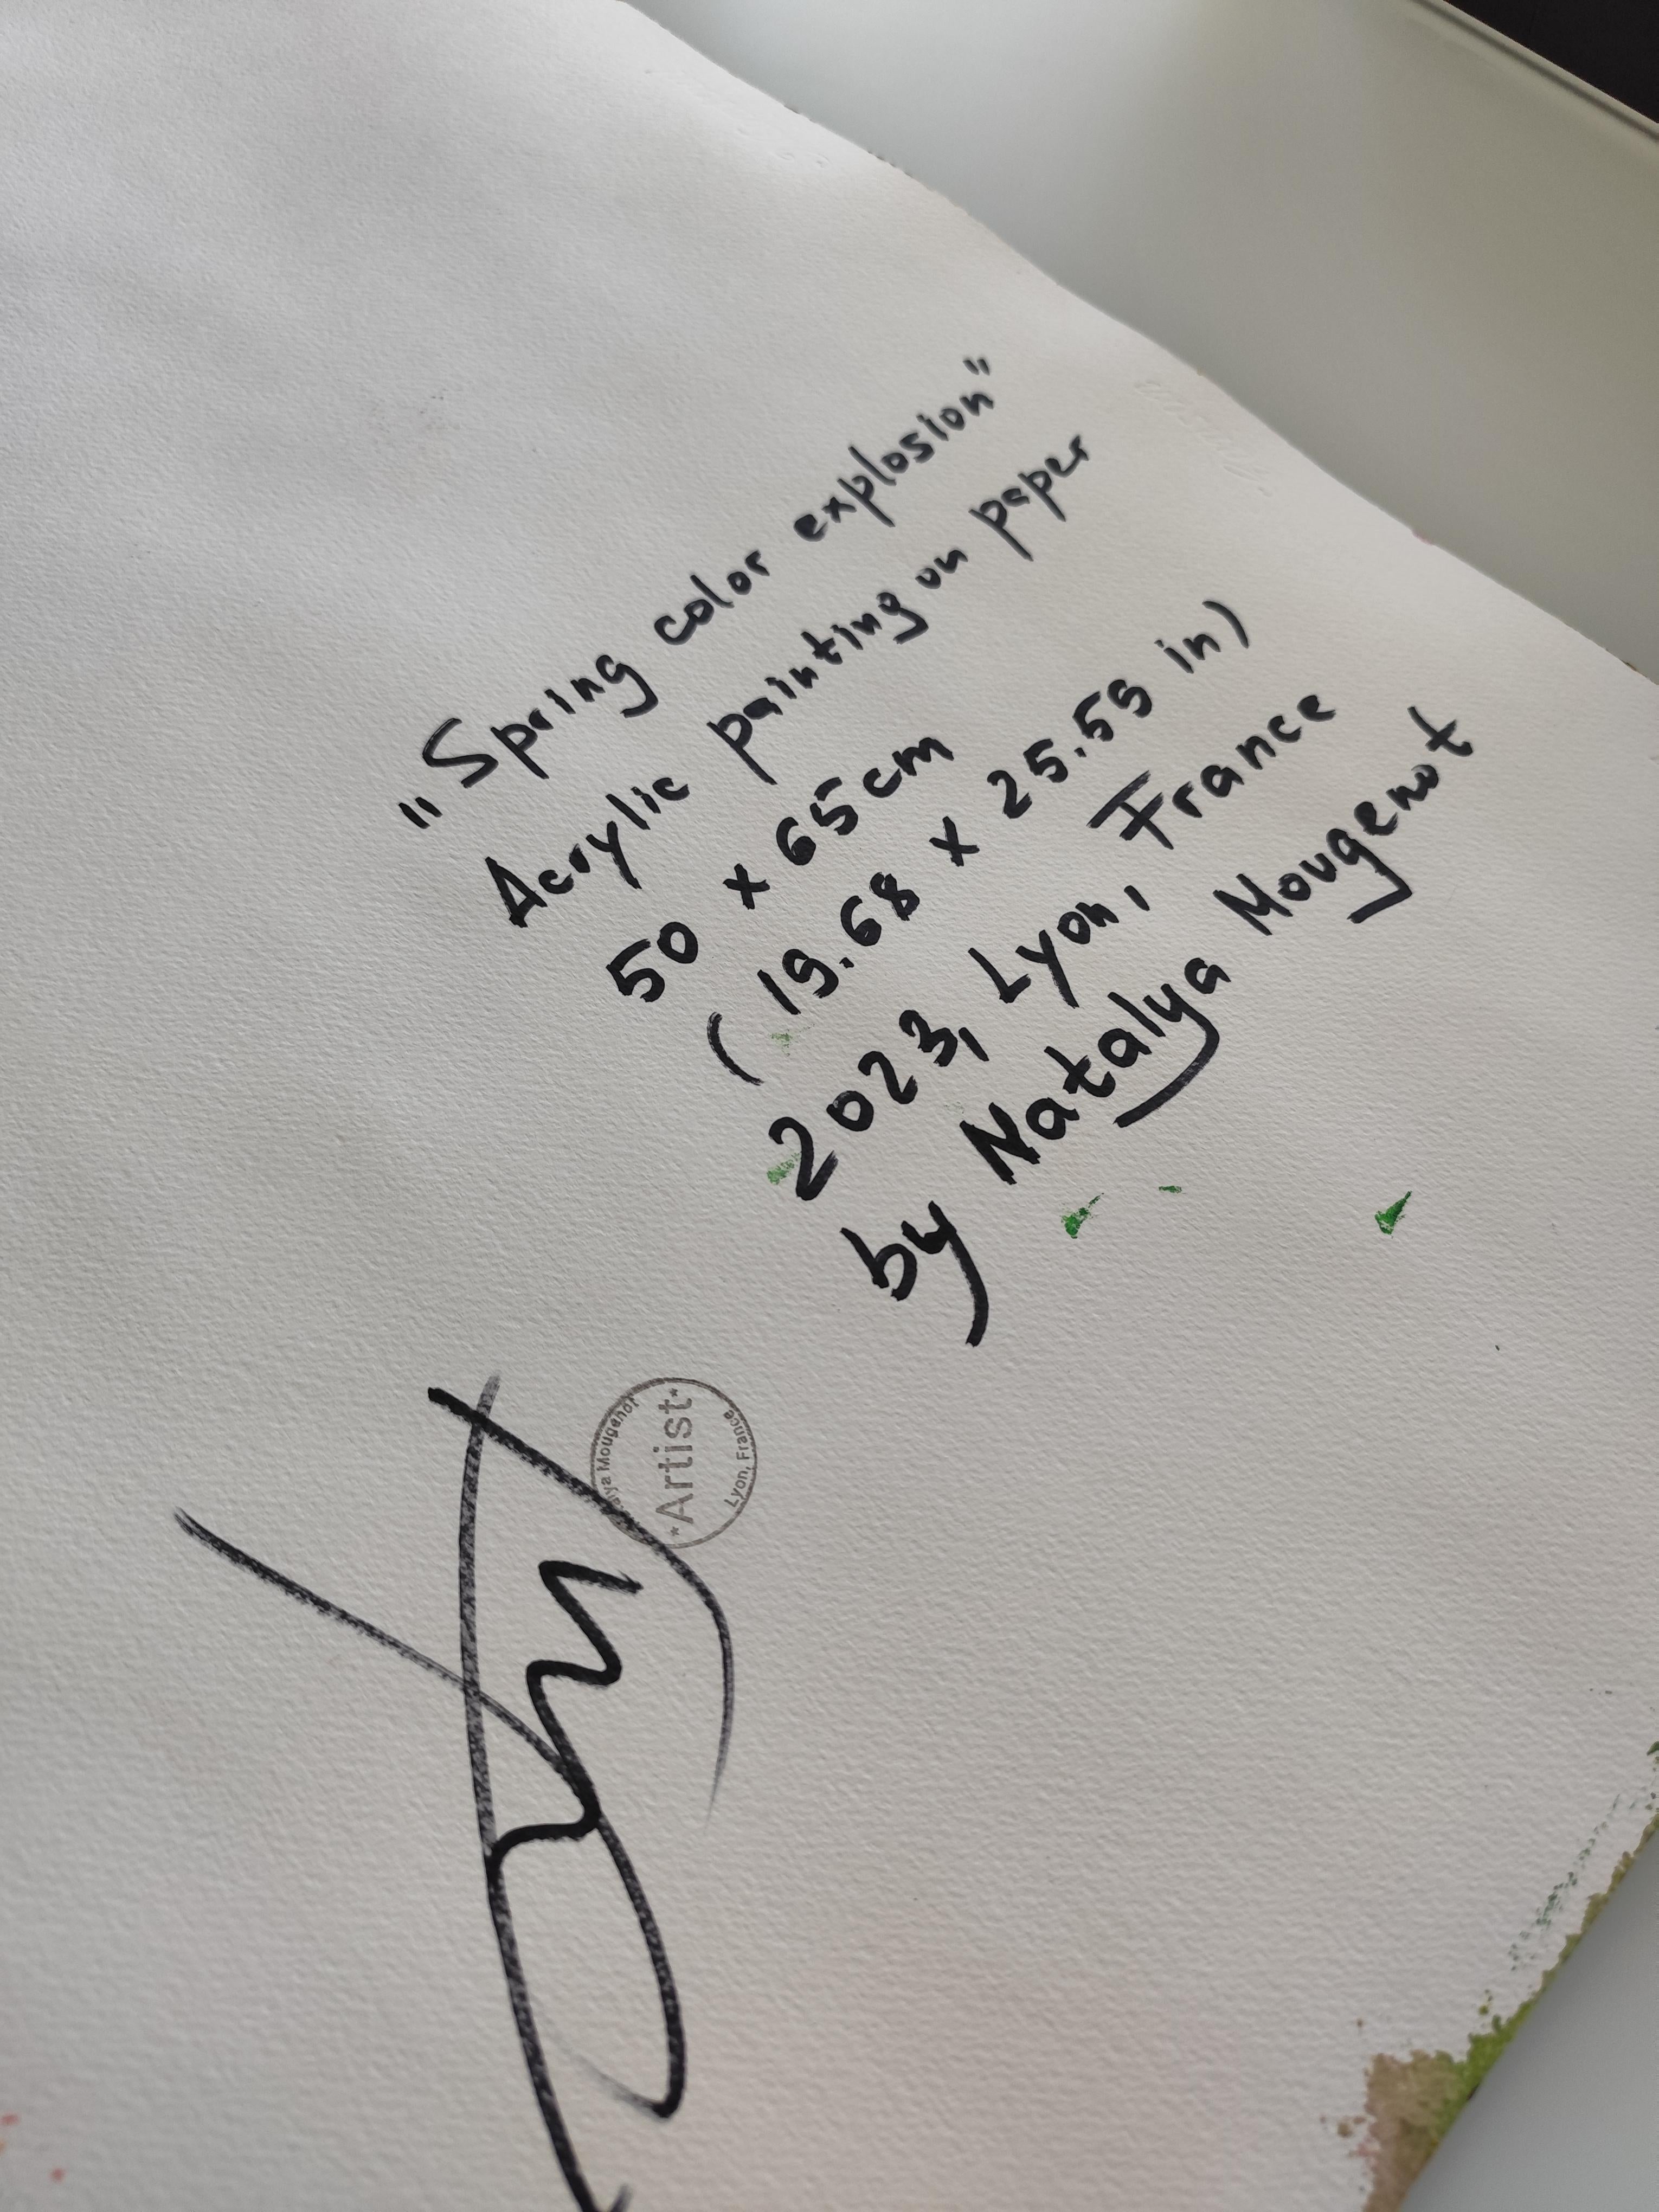 "Spring color explosion"
Acrylic painting on paper
50 x 65cm
(19.68 x 25.59 in)
2023, Lyon, France
by Natalya Mougenot
alya Mougenot
*Artist*
Lyon, France